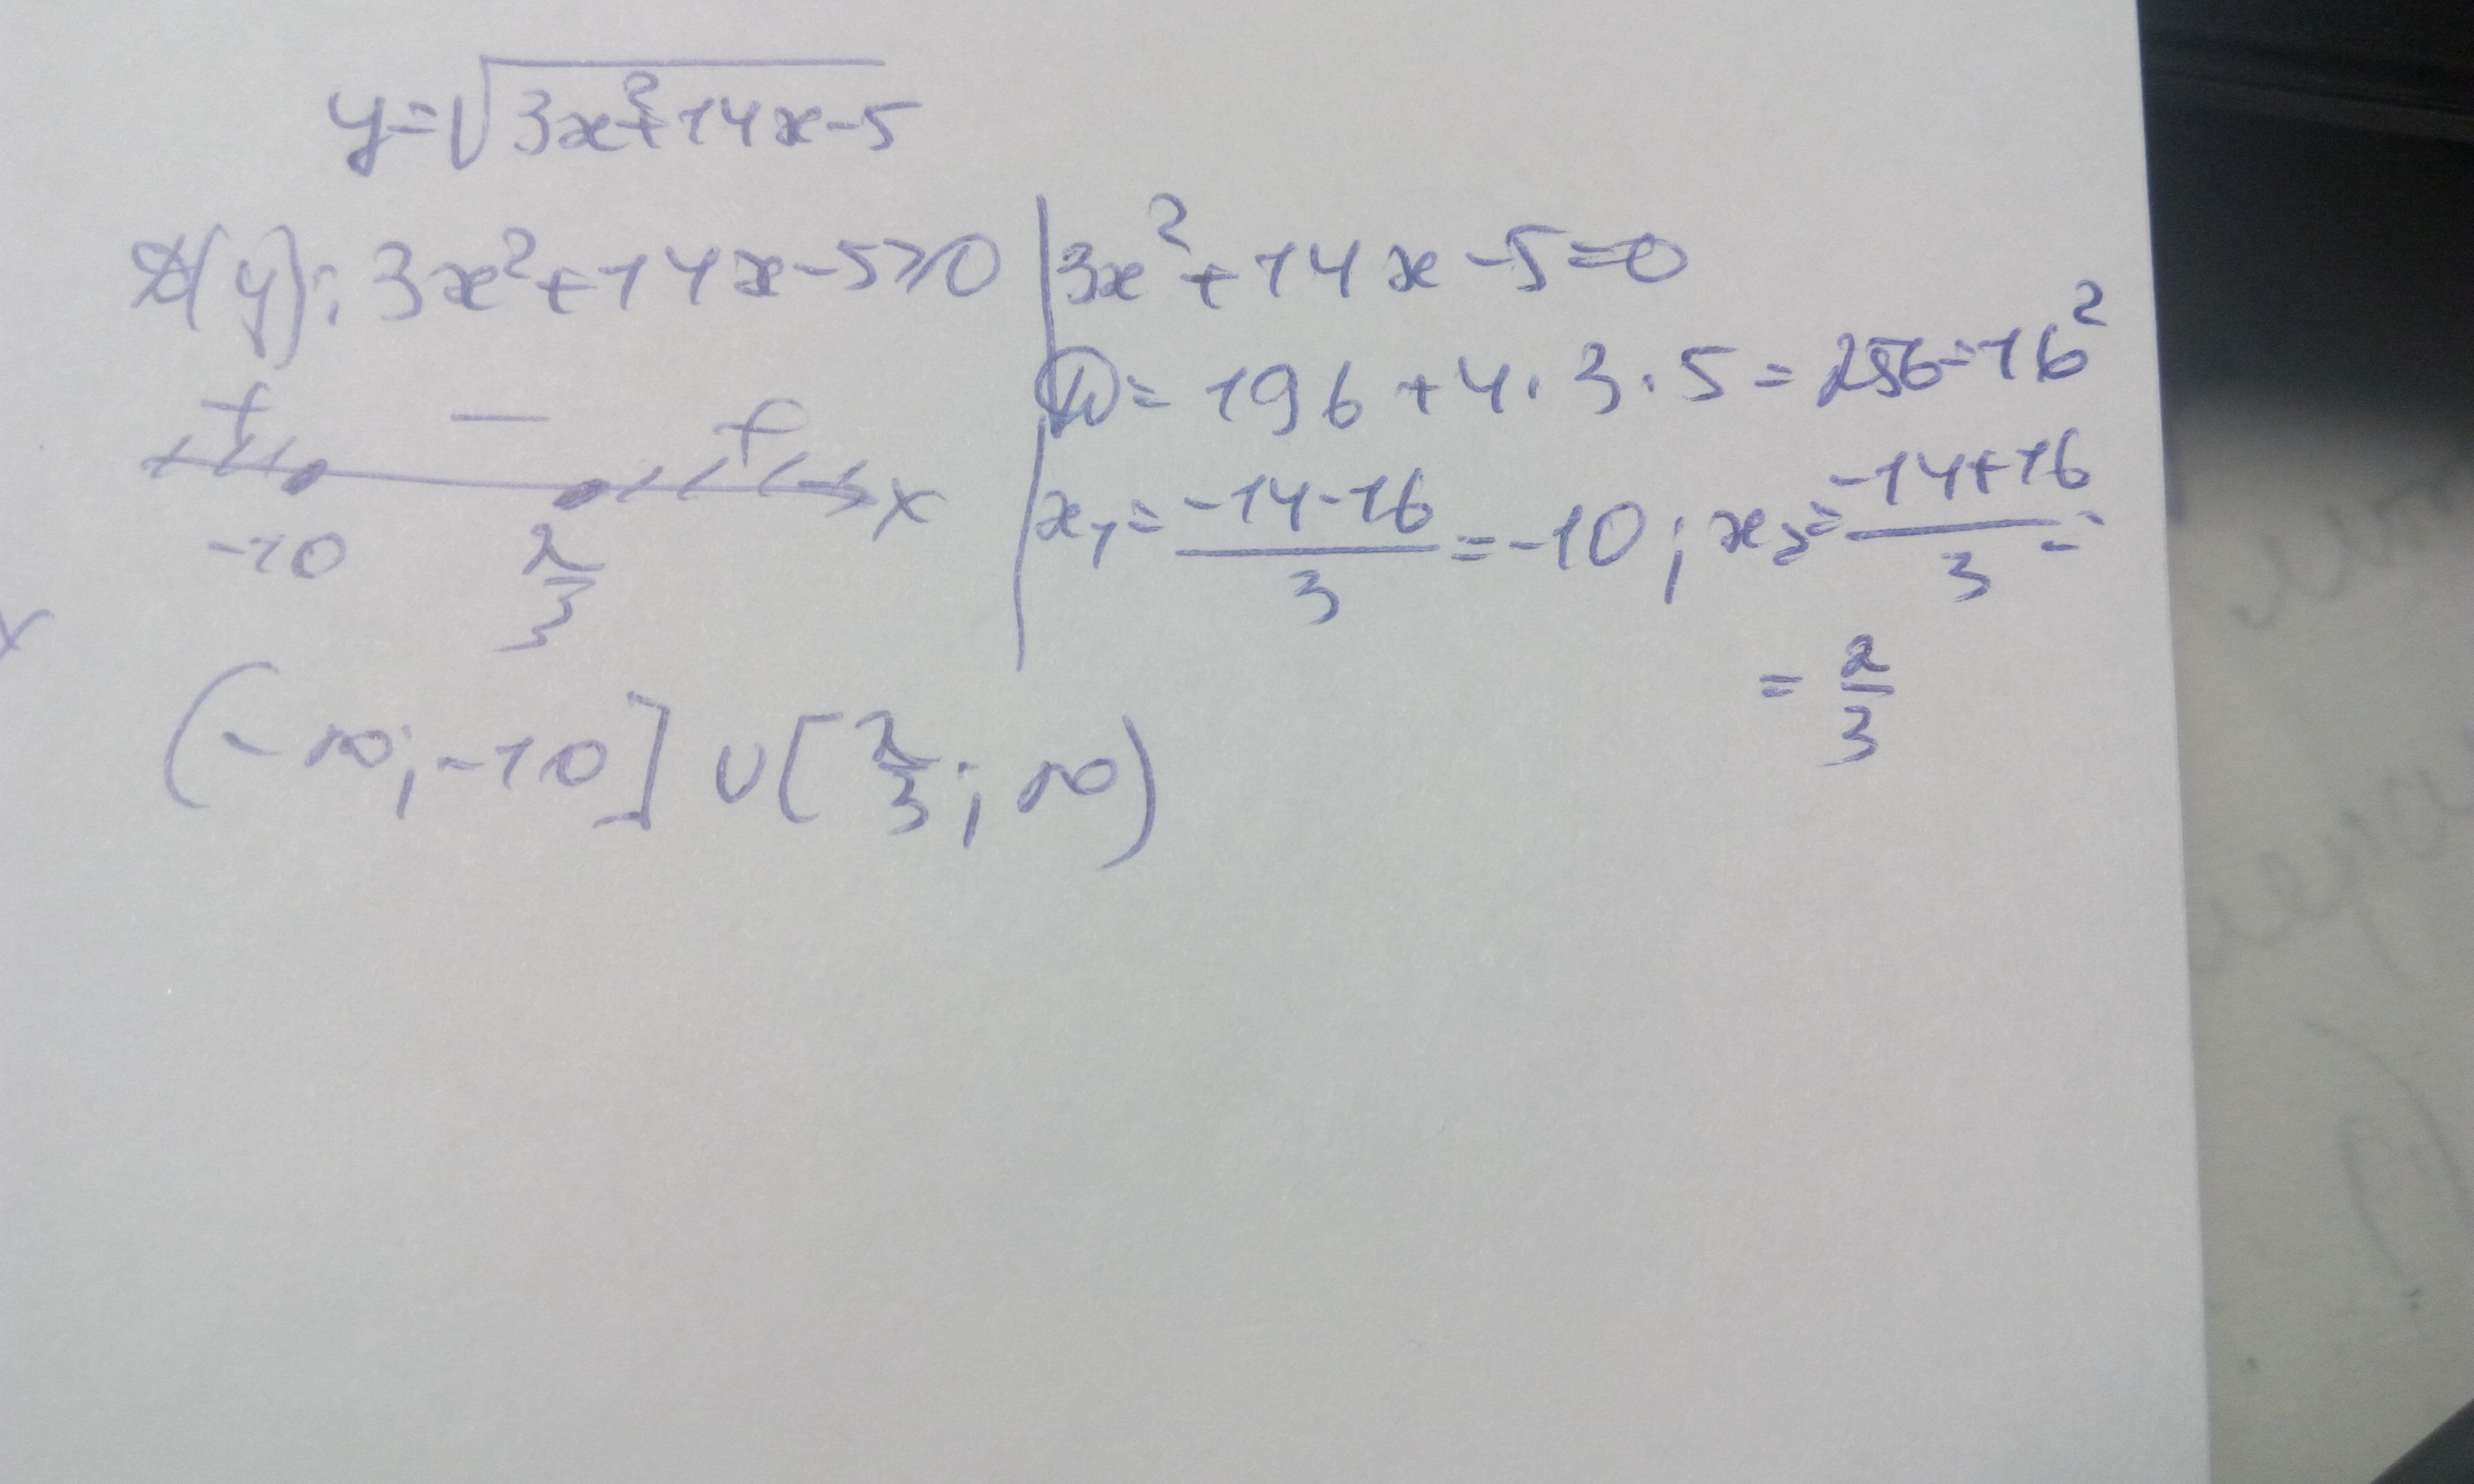 y=√(3x²+14x-5)
D(y): 3x²+14x-5≥0
+ − +
-10 2/3 x
(-∞; -10] ∪ [2/3; ∞)
3x²+14x-5=0
D=196+4·3·5=256=16²
x₁=(-14-16)/3=-10; x₂=(-14+16)/3=
=2/3